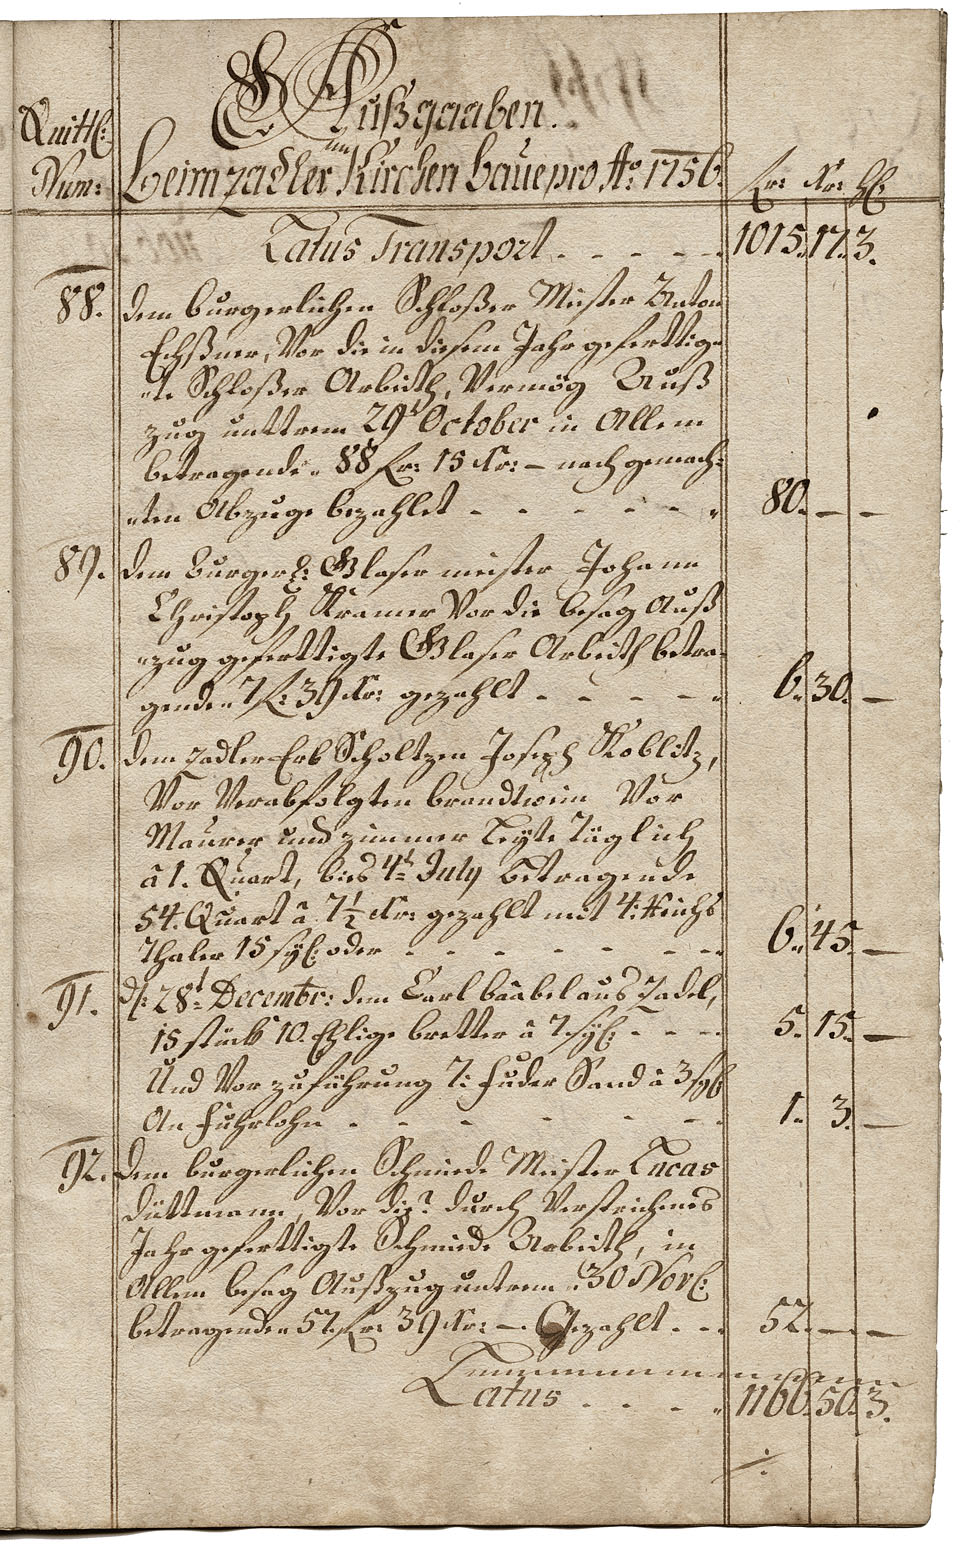 Außgaaben.
Quittl:
Num: Beim Zadler Kirchen baue pro Ao: 1756. Fr: Kr: hl
Latus Transport . - - - - 1015. 17. 3.
88. dem burgerlichen Schloßer Meister Anton
Echßner, Vor die in diesem Jahr geferttig=
=te Schloßer Arbeith, Vermög Auß
zug unttrem 29t October in Allem
betragende 88 Fr: 15 Kr: – nach gemach=
=ten Abzuge bezahlet - - - - - 80. — —
89. dem burgerl: Glaser meister Johann
Christoph Kramer Vor die besag Auß
=zug geferttigte Glaser Arbeith betra=
genden 7 f: 39 Kr: gezahlt - - - - 6. 30. —
90. dem Zadler Erb Scholtzen Joseph Koblitz,
Vor Verabfolgten brandtwein Vor
Maurer und Zimmer Leyte Täglich
â 1. Quart, bies 4t July betragende
54. Quart â 7½ Kr: gezahlt mit 4: Reichs
Thaler 15 sgl: oder - - - - - - 6. 45. —
91. d: 28t Decembr: dem Carl bäabel aus Zadel,
15 stück 10. Ehlige bretter â 7 sgl: - - - 5. 15. —
Und Vor zuführung 7: fuder Sand â 3 sgl
An Fuhrlohn - - - - - - 1. 3. —
92. Dem burgerlichen Schmiede Meister Lucas
Düttmann, Vor die durch Verstrichenes
Jahr geferttigte Schmiede Arbeith, in
Allem besag Außzug untrem 30 Novl:
betragenden 57 Fr: 39 Kr: – Gezahlt . - - 52. — —
Latus . . . . 1160. 50. 3.
./.